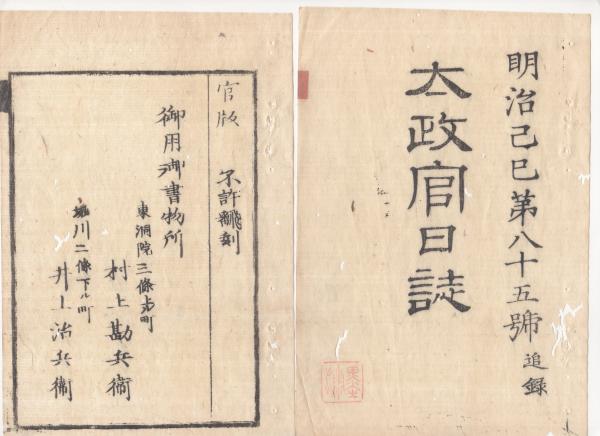 明治己巳第八十五號 追録
太政官日誌
官版 不許飜刻
御用御書物所
東洞院三條上ル町
村上勘兵衞
堀川二條下ル町
井上治兵衞